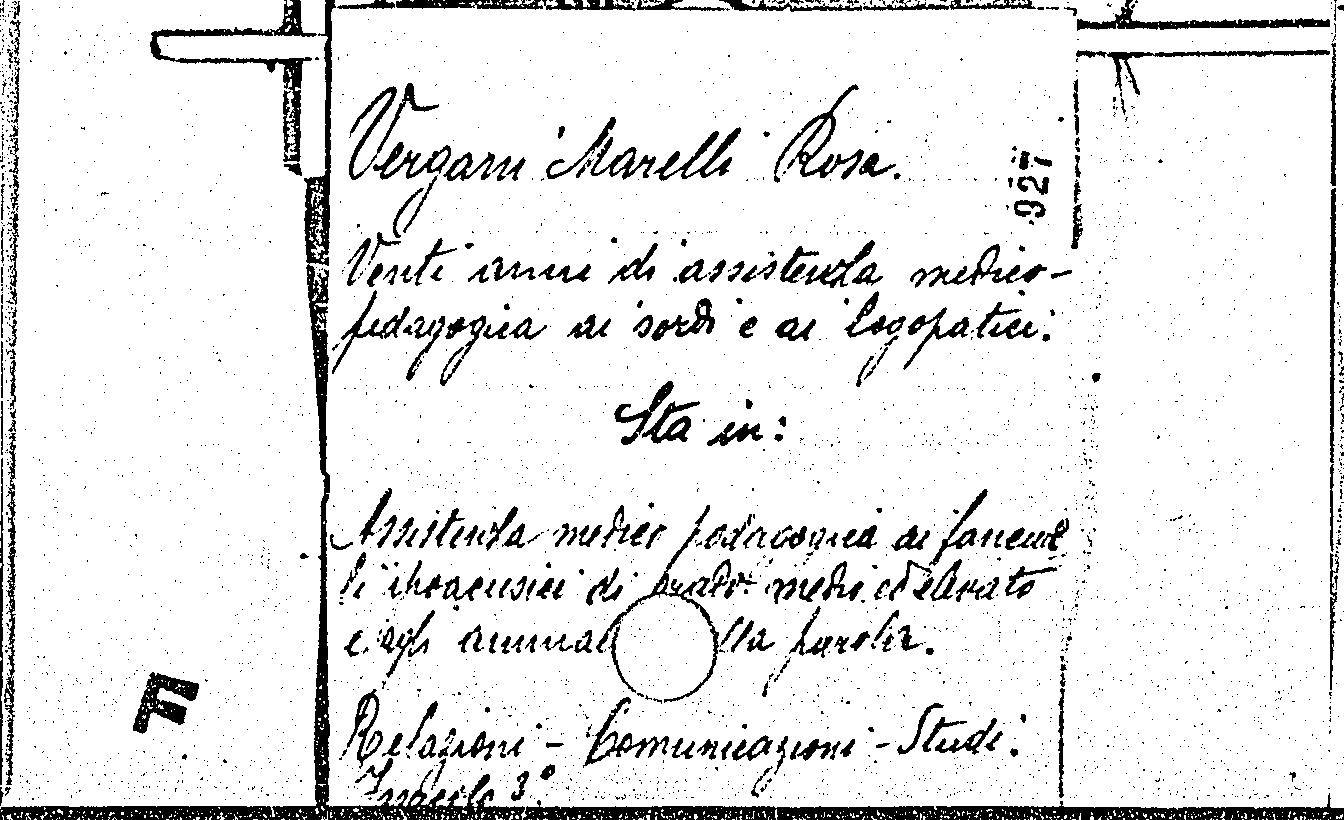 Vergani Marelli Rosa.
927
Venti anni di assistenza medico-
pedagogica ai sordi e ai logopatici.
Sta in:
Assistenza medico pedagogica ai fanciul
li ipoacusici di grado medio ed elevato
e agli anormal lla parola.
Relazioni - Comunicazioni - Studi.
Fascicolo 3°.
F